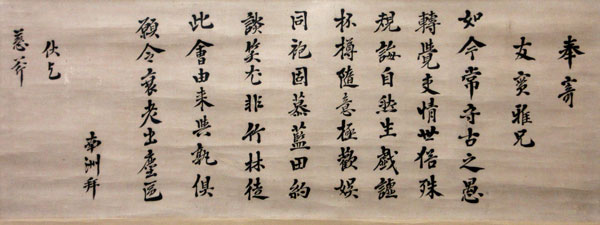 奉寄
友實雅兄
如今常守古之愚
轉覺交情世俗殊
規誨自然生戲謔
杯樽隨意極歡娯
同袍固慕藍田約
談笑尤非竹林徒
此會由来與孰俱
願令衰老出塵區
南洲拜
伏乞
慈斧